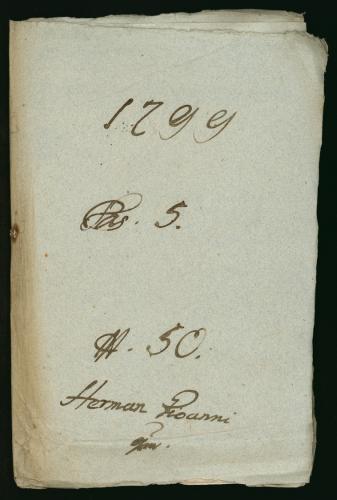 1799
Fas. 5.
N. 50.
Herman Gioanni